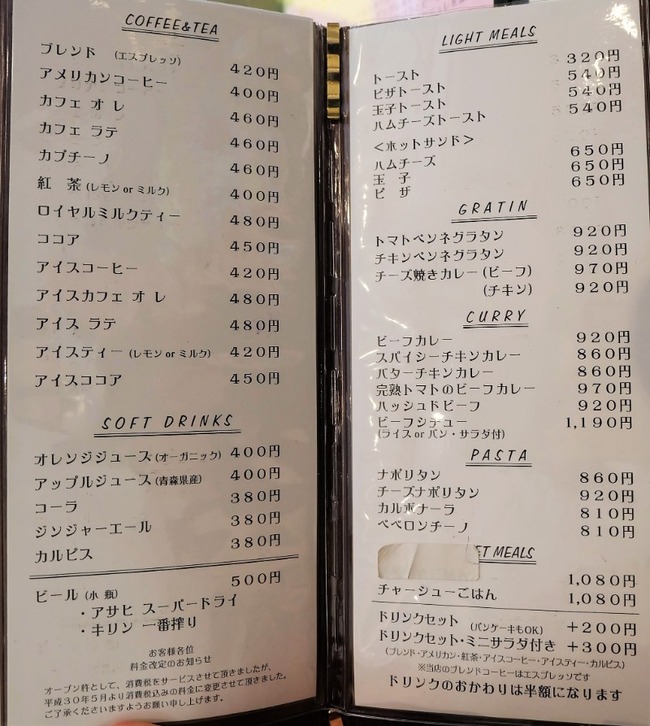 COFFEE&TEA
ブレンド (エスプレッソ) 420円
アメリカンコーヒー 400円
カフェ オ レ 460円
カフェ ラテ 460円
カプチーノ 460円
紅 茶 (レモン or ミルク) 400円
ロイヤルミルクティー 480円
ココア 450円
アイスコーヒー 420円
アイスカフェ オ レ 480円
アイス ラテ 480円
アイスティー (レモン or ミルク) 420円
アイスココア 450円
SOFT DRINKS
オレンジジュース (オーガニック) 400円
アップルジュース (青森県産) 400円
コーラ 380円
ジンジャーエール 380円
カルピス 380円
ビール (小 瓶) 500円
・アサヒ スーパードライ
・キリン 一番搾り
お客様各位
料金改定のお知らせ
オープン時として、消費税をサービスさせて頂きましたが、
平成30年5月より消費税込みの料金に変更させて頂きました。
ご了承くださいますようお願い申し上げます。
LIGHT MEALS
トースト 320円
ピザトースト 540円
玉子トースト 540円
ハムチーズトースト 540円
<ホットサンド>
ハムチーズ 650円
玉 子 650円
ピ ザ 650円
GRATIN
トマトペンネグラタン 920円
チキンペンネグラタン 920円
チーズ焼きカレー (ビーフ) 970円
(チキン) 920円
CURRY
ビーフカレー 920円
スパイシーチキンカレー 860円
バターチキンカレー 860円
完熟トマトのビーフカレー 970円
ハッシュドビーフ 920円
ビーフシチュー 1,190円
(ライス or パン・サラダ付)
PASTA
ナポリタン 860円
チーズナポリタン 920円
カルボナーラ 810円
ペペロンチーノ 810円
ET MEALS
1,080円
チャーシューごはん 1,080円
ドリンクセット (パンケーキもOK) +200円
ドリンクセット・ミニサラダ付き +300円
(ブレンド・アメリカン・紅茶・アイスコーヒー・アイスティー・カルピス)
※当店のブレンドコーヒーはエスプレッソです
ドリンクのおかわりは半額になります